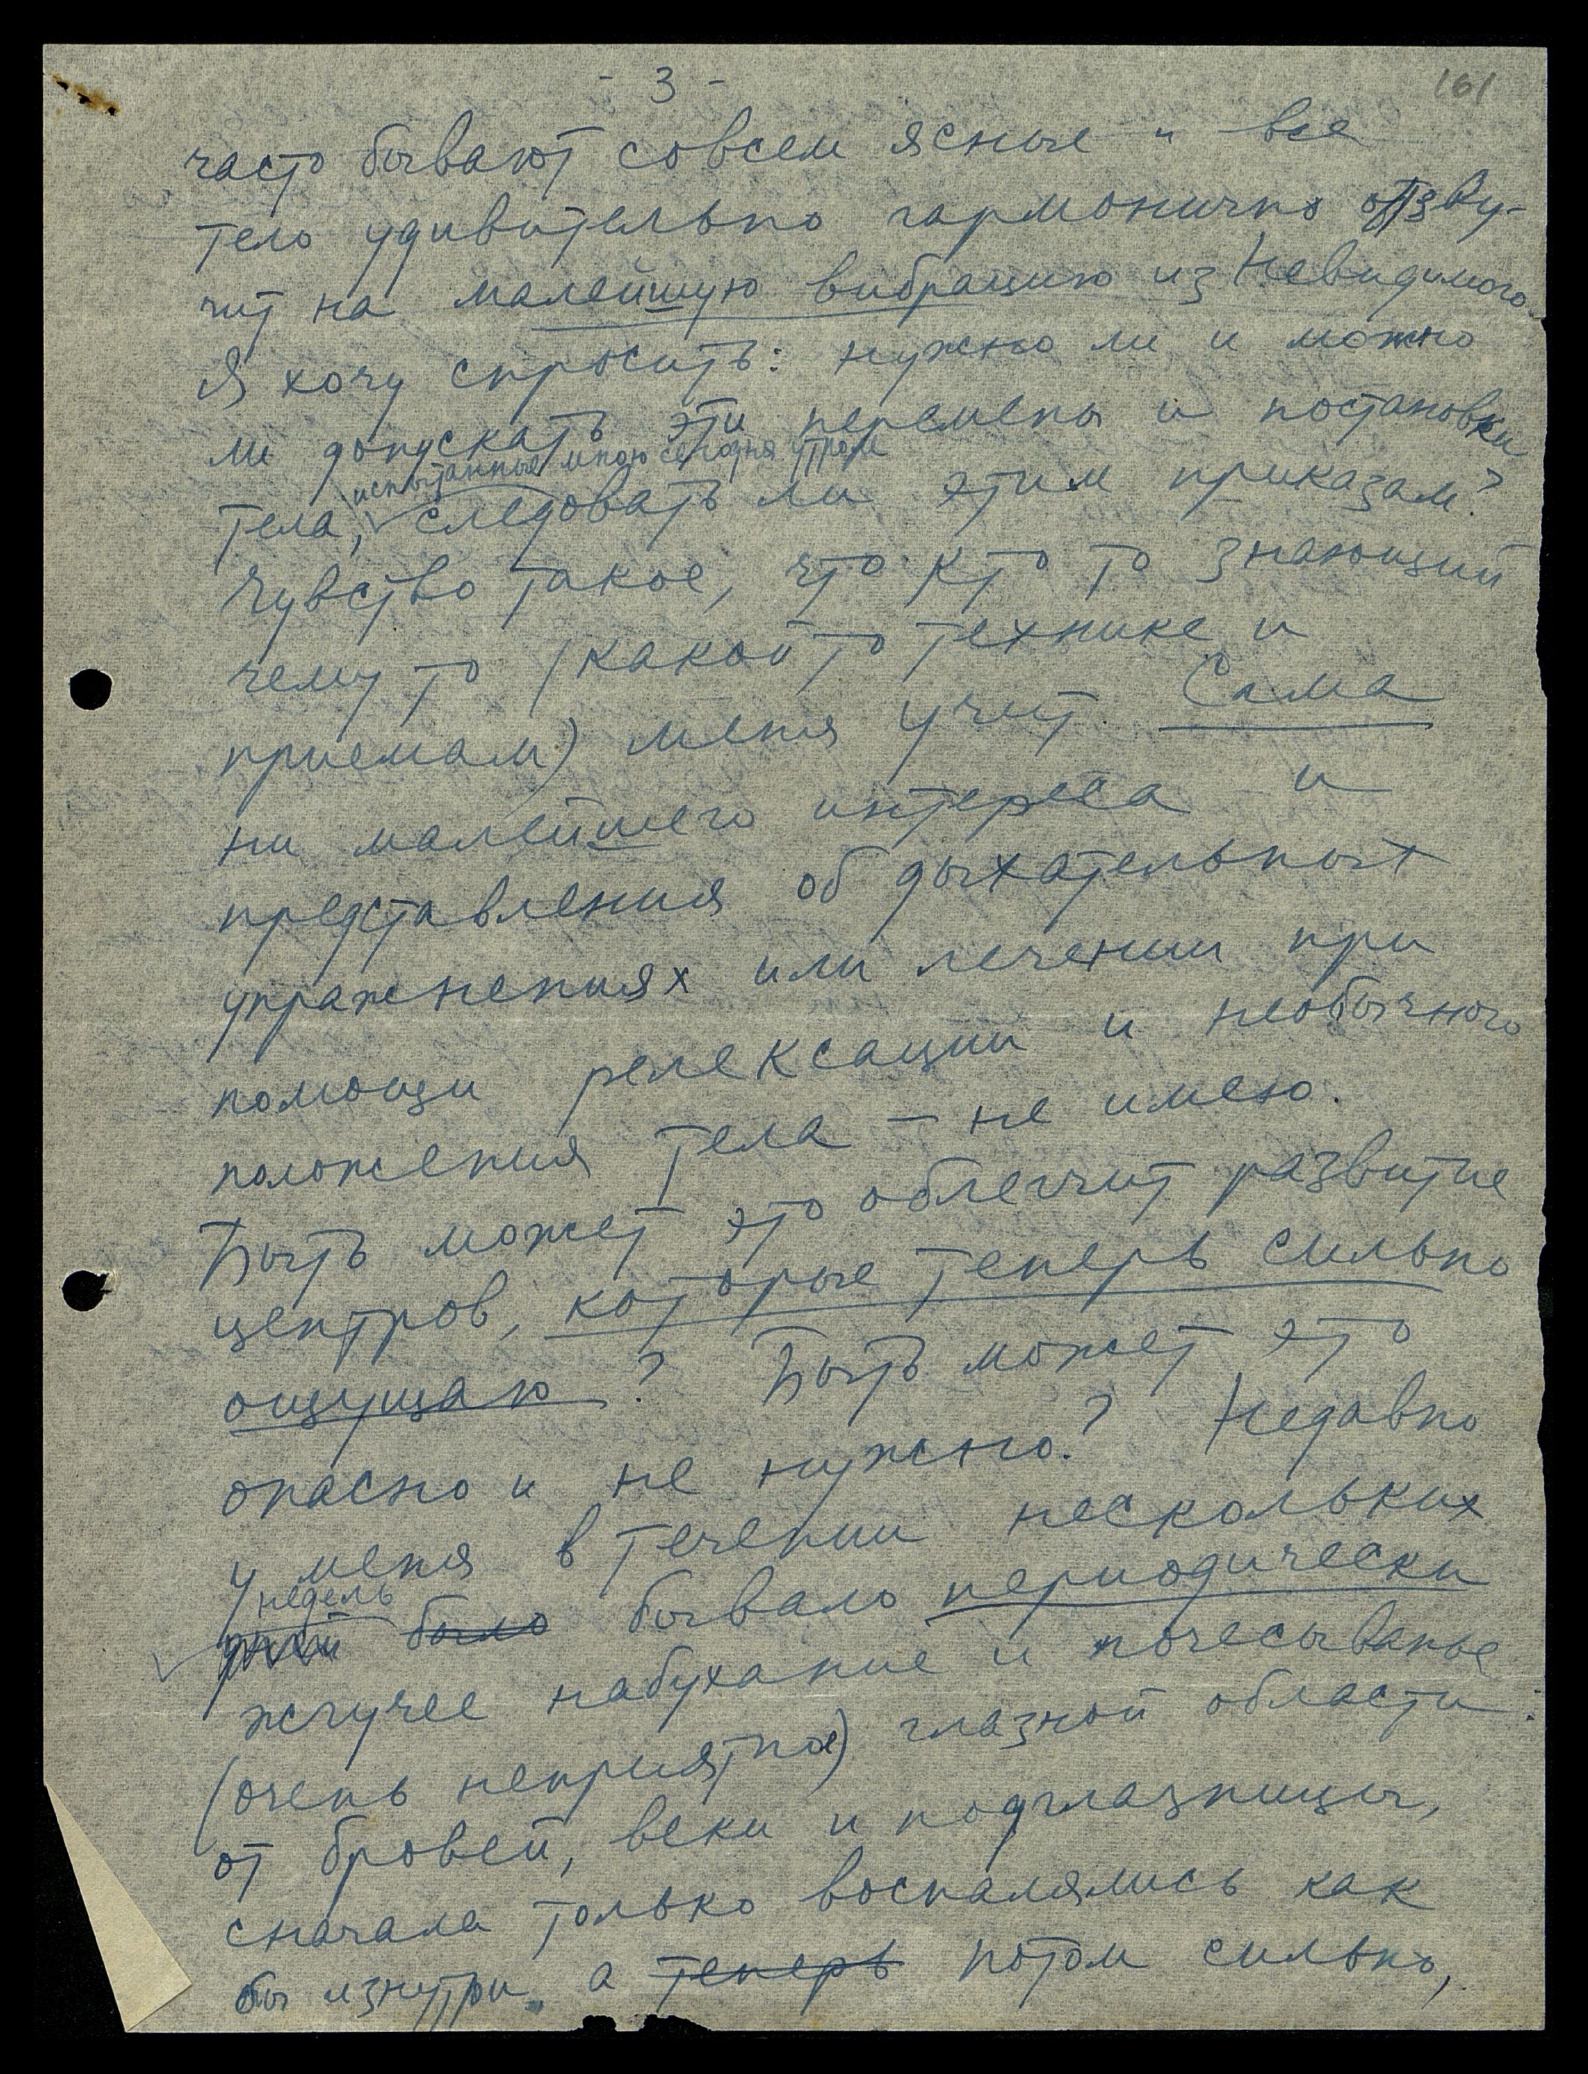 - 3 -
161
часто бывают совсем ясные и все
тело удивительно гармонично отзву-
чит на малейшую вибрацию из Невидимого.
Я хочу спросить: нужно ли и можно
ли допускать эти перемены и постановки
испытанные мною сегодня утром
тела, следовать ли этим приказам?
Чувство такое, что кто то знающий
чему то (какой то технике и
приемам) меня учит. Сама
ни малейшего интереса и
представления об дыхательных
упражнениях или лечении при
помощи релексации и необычного
положения тела — не имею.
Быть может это облегчит развитие
центров, которые теперь сильно
ощущаю? Быть может это
опасно и не нужно? Недавно
у меня в течении нескольких
недель
дней было бывало периодически
жгучее набухание и почесыванье
(очень неприятное) глазной области.
от бровей, веки и подглазницы,
сначала только воспалялись как
бы изнутри, а теперь потом сильно,